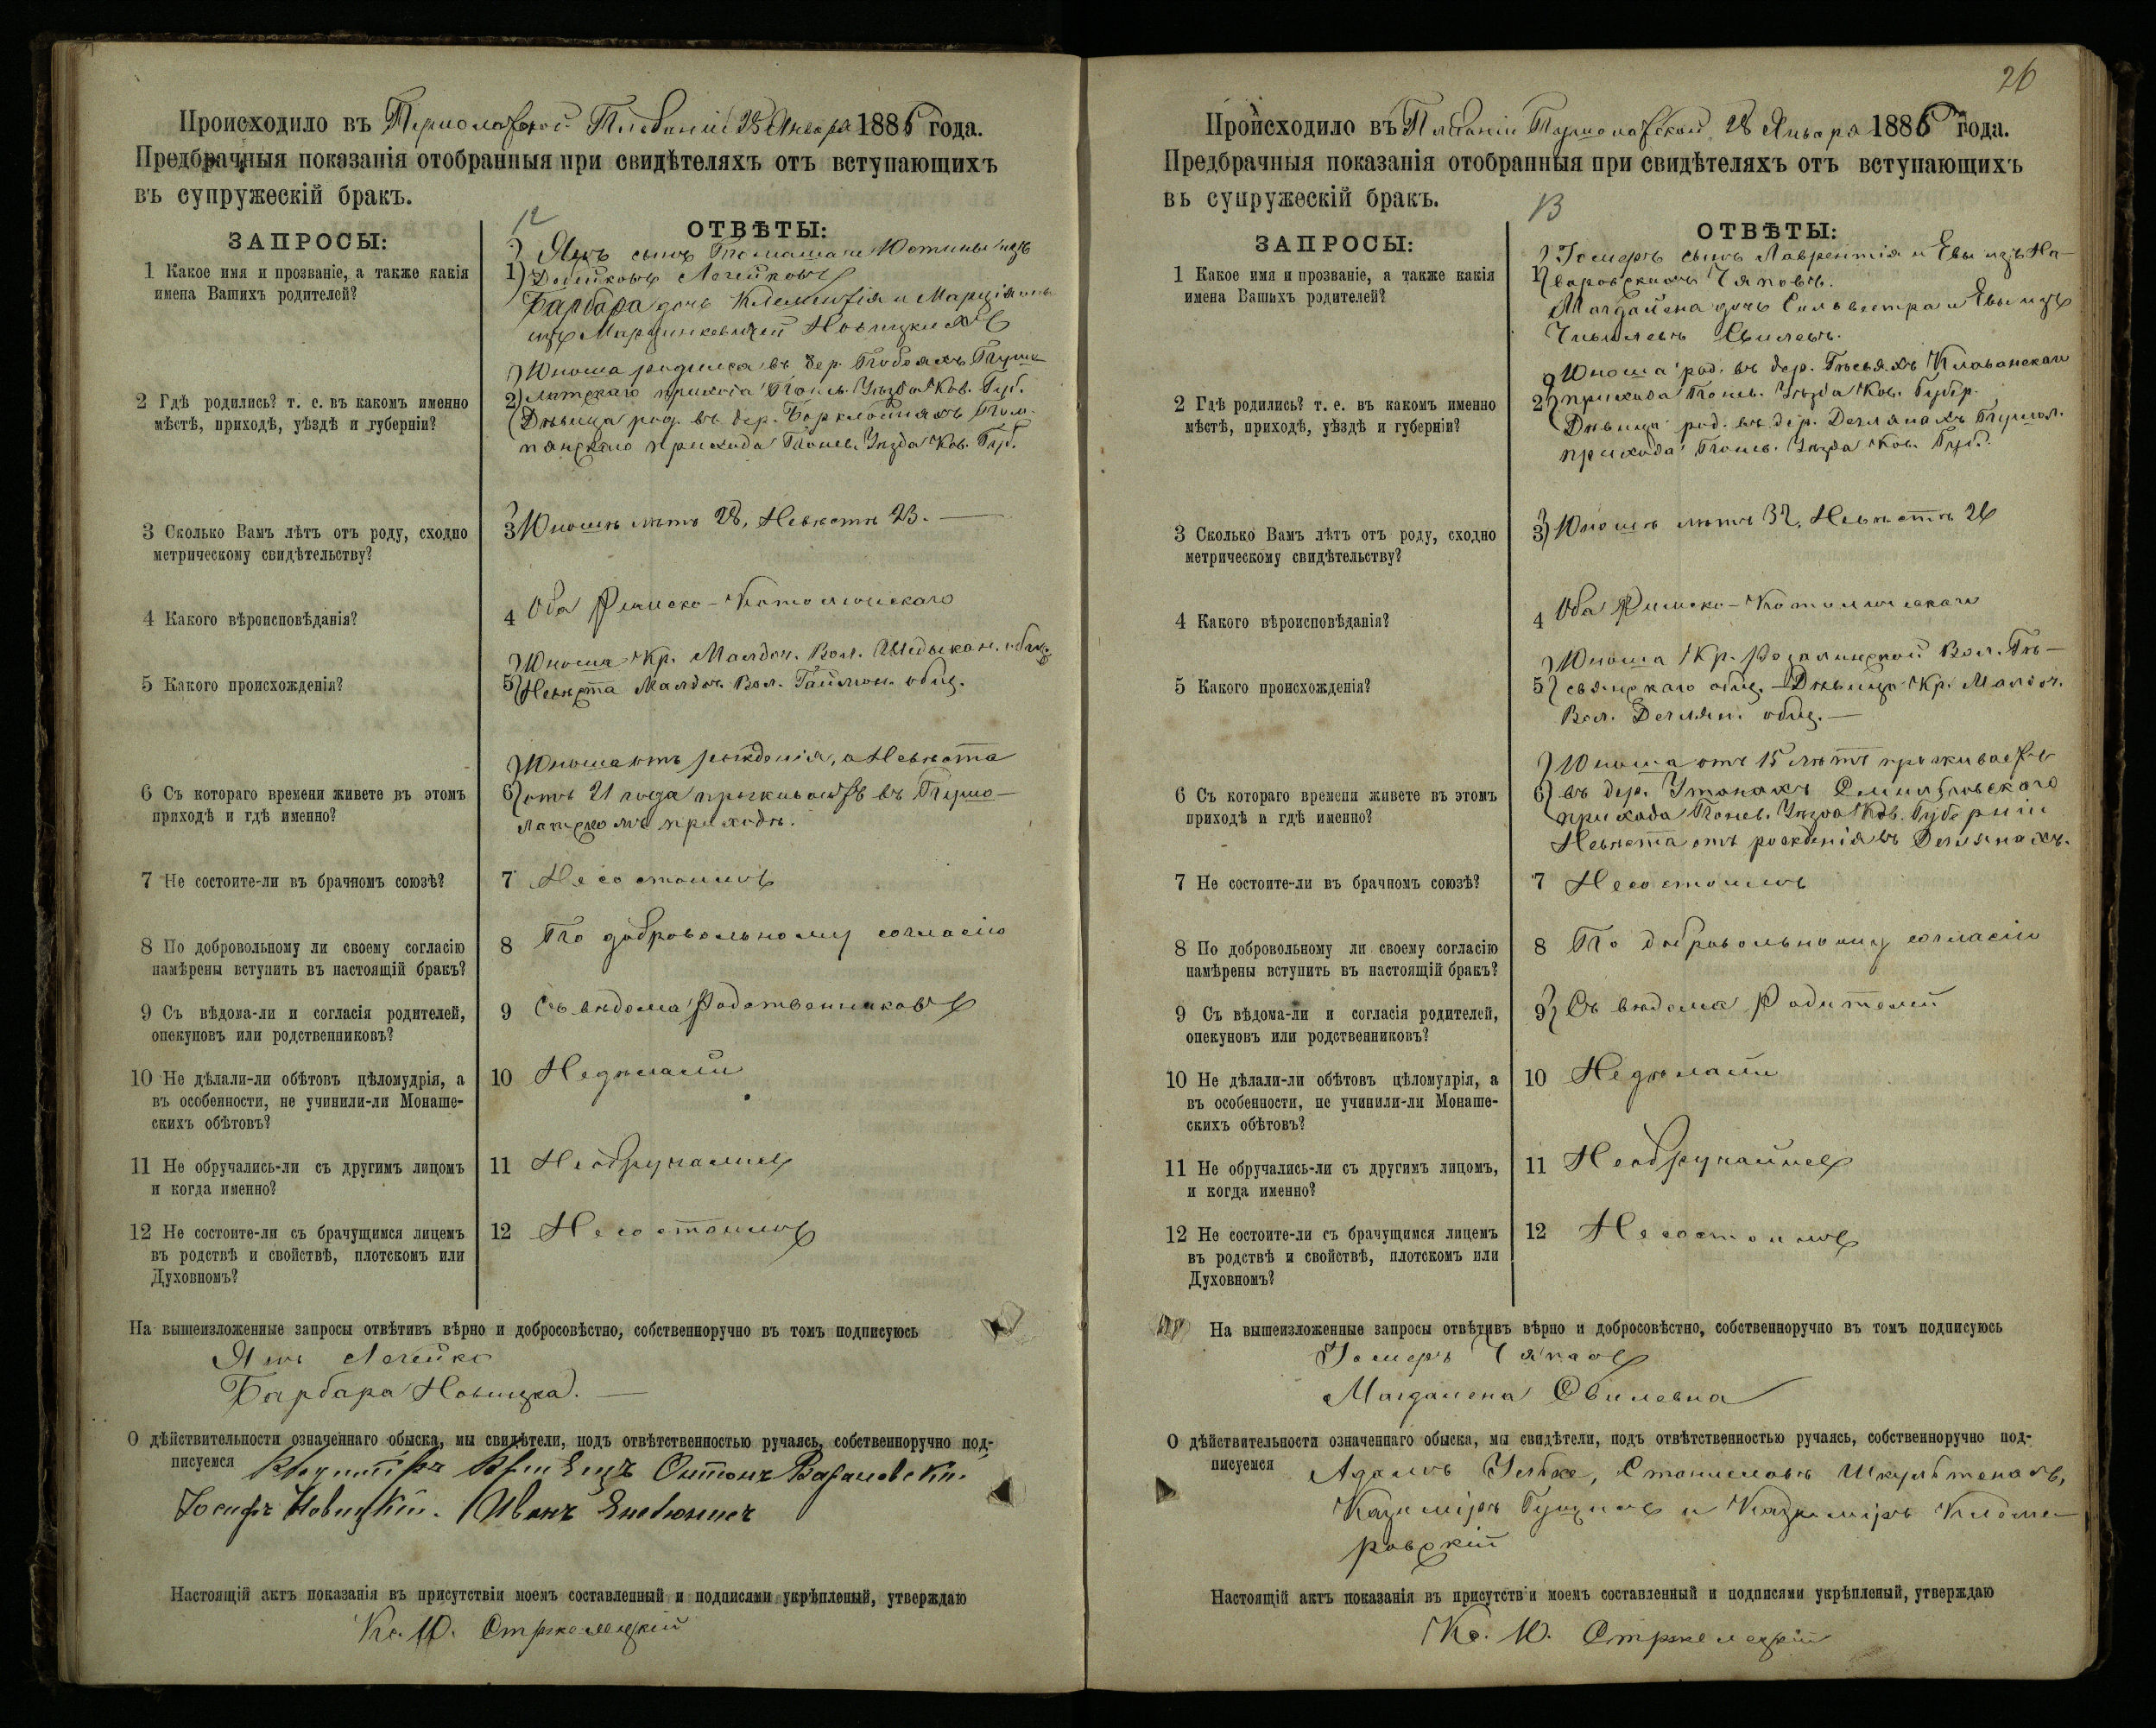 Происходило въ Плебаніи 28 Января 1886 года.
Предбрачныя показанія отобранныя при свидѣтеляхъ отъ вступающихъ
въ супружескій бракъ.
12
ЗАПРОСЫ:
ОТВѢТЫ:
1 Какое имя и прозваніе, а также какія
имена Вашихъ родителей?
1) Янъ сынъ Томаша и Юстины изъ
Барбара дочь Клементія и
изъ Марцинкевичей
2 Гдѣ родились? т. е. въ какомъ именно
мѣстѣ, приходѣ, уѣздѣ и губерніи?
2) Юноша родился въ дер.
прихода Понев. Уѣзда Ков. Губ.
Дѣвица род. въ дер.
прихода Понев. Уѣзда Ков. Губ.
3 Сколько Вамъ лѣтъ отъ роду, сходно
метрическому свидѣтельству?
3) Юношѣ лѣтъ 28, Невѣстѣ 23. —
4 Какого вѣроисповѣданія?
4 Оба Римско-Католическаго
5 Какого происхожденія?
5) Юноша Кр. Вол.
Невѣста Вол. общ.
6 Съ котораго времени живете въ этомъ
приходѣ и гдѣ именно?
6) Юноша отъ рожденія, а Невѣста
отъ 21 года въ
приходѣ.
7 Не состоите-ли въ брачномъ союзѣ?
7 Не состоимъ
8 По добровольному ли своему согласію
намѣрены вступить въ настоящій бракъ?
8 По добровольному согласію
9 Съ вѣдома-ли и согласія родителей,
опекуновъ или родственниковъ?
9 Съ вѣдома Родственниковъ
10 Не дѣлали-ли обѣтовъ цѣломудрія, а
въ особенности, не учинили-ли Монаше-
скихъ обѣтовъ?
10 Не дѣлали
11 Не обручались-ли съ другимъ лицомъ
и когда именно?
11 Не обручались
12 Не состоите-ли съ брачущимся лицемъ
въ родствѣ и свойствѣ, плотскомъ или
Духовномъ?
12 Не состоимъ
На вышеизложенные запросы отвѣтивъ вѣрно и добросовѣстно, собственноручно въ томъ подписуюсь
Янъ
Барбара Новицка. —
О дѣйствительности означеннаго обыска, мы свидѣтели, подъ отвѣтственностью ручаясь, собственноручно под-
писуемся Антонъ
Іосифъ Новицкій. Иванъ
Настоящій актъ показанія въ присутствіи моемъ составленный и подписями укрѣпленый, утверждаю
Кс. Ю.
26
Происходило въ Плебаніи 28 Января 1886 года.
Предбрачныя показанія отобранныя при свидѣтеляхъ отъ вступающихъ
въ супружескій бракъ.
13
ЗАПРОСЫ:
ОТВѢТЫ:
1 Какое имя и прозваніе, а также какія
имена Вашихъ родителей?
1) сынъ Лаврентія и Евы изъ
Магдалена дочь Сильвестра и Евы изъ
2 Гдѣ родились? т. е. въ какомъ именно
мѣстѣ, приходѣ, уѣздѣ и губерніи?
2) Юноша род. въ дер.
прихода Понев. Уѣзда Ков. Губер.
Дѣвица род. въ дер.
прихода Понев. Уѣзда Ков. Губ.
3 Сколько Вамъ лѣтъ отъ роду, сходно
метрическому свидѣтельству?
3) Юношѣ лѣтъ 32, Невѣстѣ 26
4 Какого вѣроисповѣданія?
4 Оба Римско-Католическаго
5 Какого происхожденія?
5) Юноша Кр. Розалинской Вол.
общ. — Дѣвица Кр.
Вол. общ. —
6 Съ котораго времени живете въ этомъ
приходѣ и гдѣ именно?
6) Юноша отъ 15 лѣтъ проживаетъ
въ дер.
прихода Понев. Уѣзда Ков. Губерніи
Невѣста отъ рожденія въ
7 Не состоите-ли въ брачномъ союзѣ?
7 Не состоимъ
8 По добровольному ли своему согласію
намѣрены вступить въ настоящій бракъ?
8 По добровольному согласію
9 Съ вѣдома-ли и согласія родителей,
опекуновъ или родственниковъ?
9) Съ вѣдома Родителей
10 Не дѣлали-ли обѣтовъ цѣломудрія, а
въ особенности, не учинили-ли Монаше-
скихъ обѣтовъ?
10 Не дѣлали
11 Не обручались-ли съ другимъ лицомъ,
и когда именно?
11 Не обручались
12 Не состоите-ли съ брачущимся лицемъ
въ родствѣ и свойствѣ, плотскомъ или
Духовномъ?
12 Не состоимъ
На вышеизложенные запросы отвѣтивъ вѣрно и добросовѣстно, собственноручно въ томъ подписуюсь
Магдалена Свилевна
О дѣйствительности означеннаго обыска, мы свидѣтели, подъ отвѣтственностью ручаясь, собственноручно под-
писуемся Адамъ Станиславъ
Казиміръ и Казиміръ
Настоящій актъ показанія въ присутствіи моемъ составленный и подписями укрѣпленый, утверждаю
Кс. Ю.